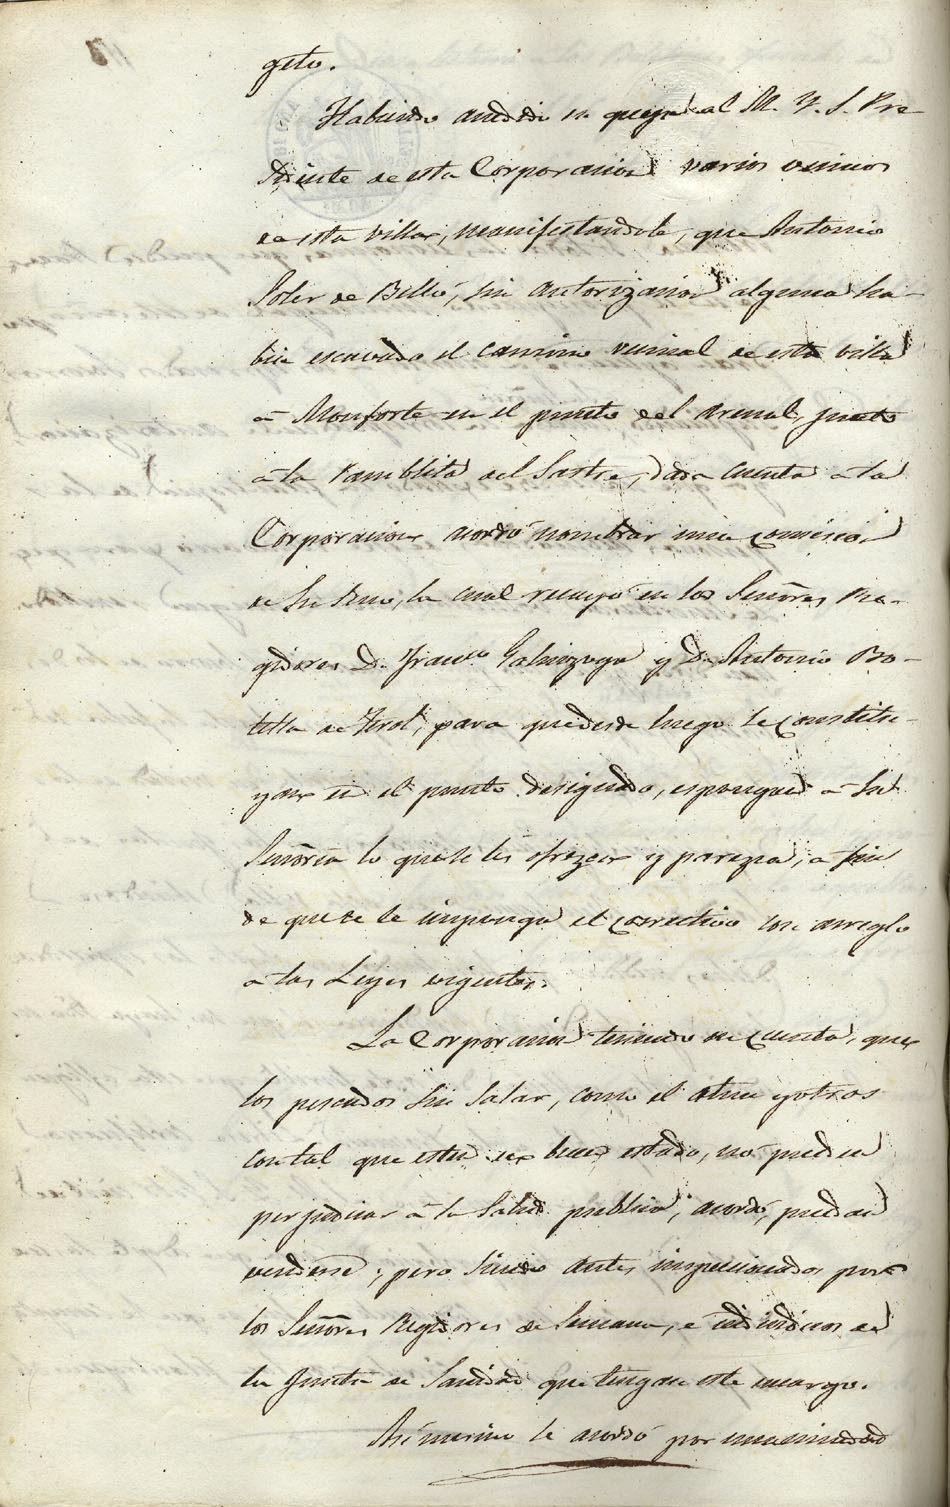 geto.
Habiendo acudido en queja al M. Y. S. Pre-
sidente de esta Corporacion varios vecinos
de esta villa, manifestandole, que Antonio
Soler de Bellio, sin autorizacion alguna ha-
bia escavado el camino vecinal de esta villa
a Monforte en el punto del Arenal, junto
á la ramblita del Sastre, dada cuenta á la
Corporacion acordó nombrar una comision
de su seno, la cual recayó en los Señores Re-
gidores D. Franco. y D. Antonio Bo-
tella de para que desde luego se constitu-
yan en el punto designado, espongan á Su
Señoria lo que se les ofrezca y parezca, a fin
de que se le imponga el correctivo con arreglo
a las Leyes vigentes.
La Corporacion teniendo en cuenta, que
los pescados sin salar, como el atun y otros
con tal que esten en buen estado, no pueden
perjudicar á la Salud publica, acordó, puedan
venderse; pero siendo antes inspeccionados por
los Señores Regidores de Semana, é individuos de
la Junta de Sanidad que tengan este encargo.
Asi mismo se acordó por unanimidad